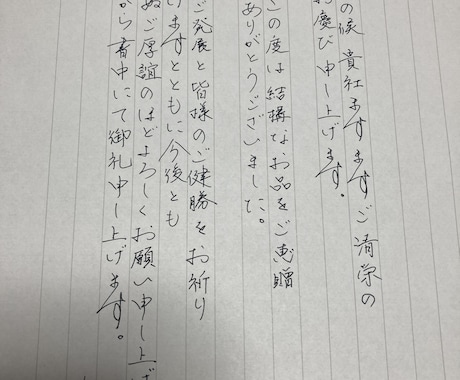 の候 貴社ますますご清栄の
お慶び申し上げます。
この度は結構なお品をご恵贈
ありがとうございました。
ご発展と皆様のご健勝をお祈り
げますとともに今後とも
ぬご厚誼のほどよろしくお願い申し上げ
から書中にて御礼申し上げます。